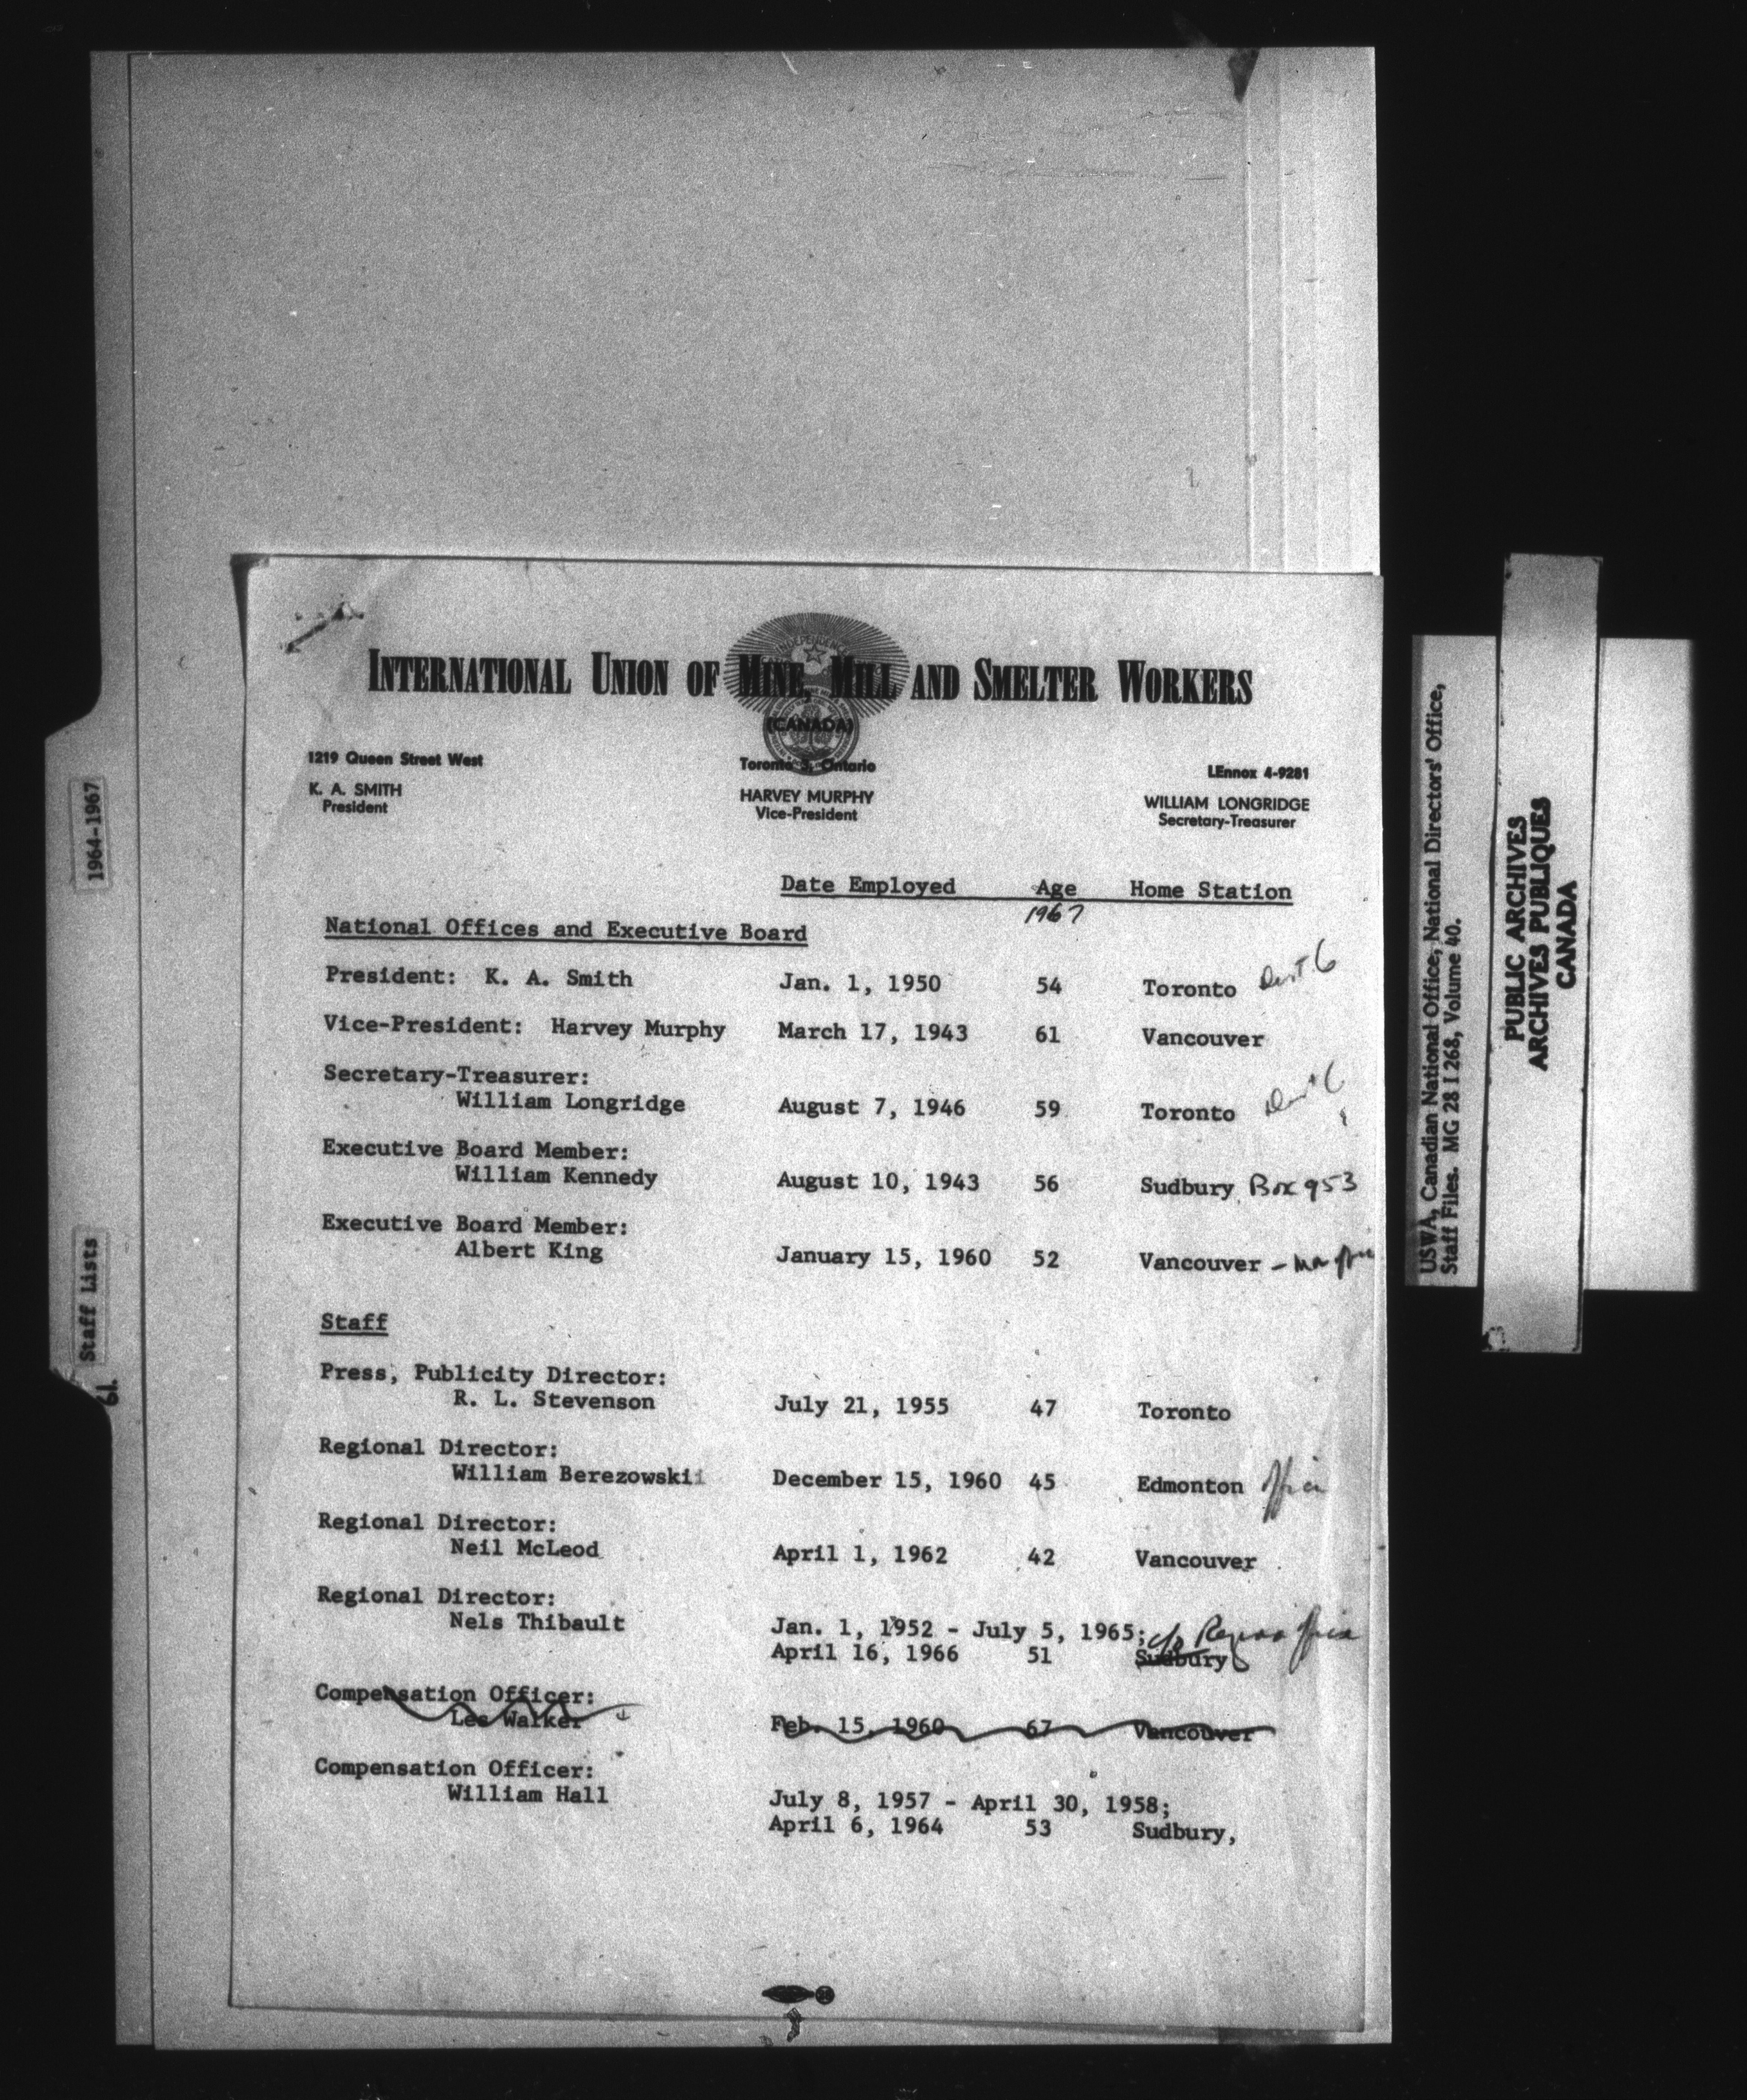 INTERNATIONAL UNION OF MINE, MILL AND SMELTER WORKERS
(CANADA)
1219 Queen Street West
Toronto 3, Ontario
LEnnox 4-9281
K. A. SMITH
President
HARVEY MURPHY
Vice-President
WILLIAM LONGRIDGE
Secretary-Treasurer
Date Employed Age Home Station
1967
National Offices and Executive Board
President: K. A. Smith Jan. 1, 1950 54 Toronto Dist 6
Vice-President: Harvey Murphy March 17, 1943 61 Vancouver
Secretary-Treasurer:
William Longridge August 7, 1946 59 Toronto Dist 6
Executive Board Member:
William Kennedy August 10, 1943 56 Sudbury Box 953
Executive Board Member:
Albert King January 15, 1960 52 Vancouver -
Staff
Press, Publicity Director:
R. L. Stevenson July 21, 1955 47 Toronto
Regional Director:
William Berezowski December 15, 1960 45 Edmonton office
Regional Director:
Neil McLeod April 1, 1962 42 Vancouver
Regional Director:
Nels Thibault Jan. 1, 1952 - July 5, 1965; c/o Regina office
April 16, 1966 51 Sudbury
Compensation Officer:
Les Walker Feb. 15, 1960 67 Vancouver
Compensation Officer:
William Hall July 8, 1957 - April 30, 1958;
April 6, 1964 53 Sudbury,
1964-1967
Staff Lists
61.
USWA, Canadian National Office, National Directors' Office,
Staff Files. MG 28 I 268, Volume 40.
PUBLIC ARCHIVES
ARCHIVES PUBLIQUES
CANADA